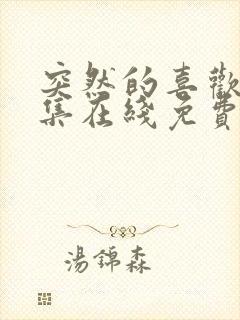 突然的喜歡
集在綫免費
湯錦森